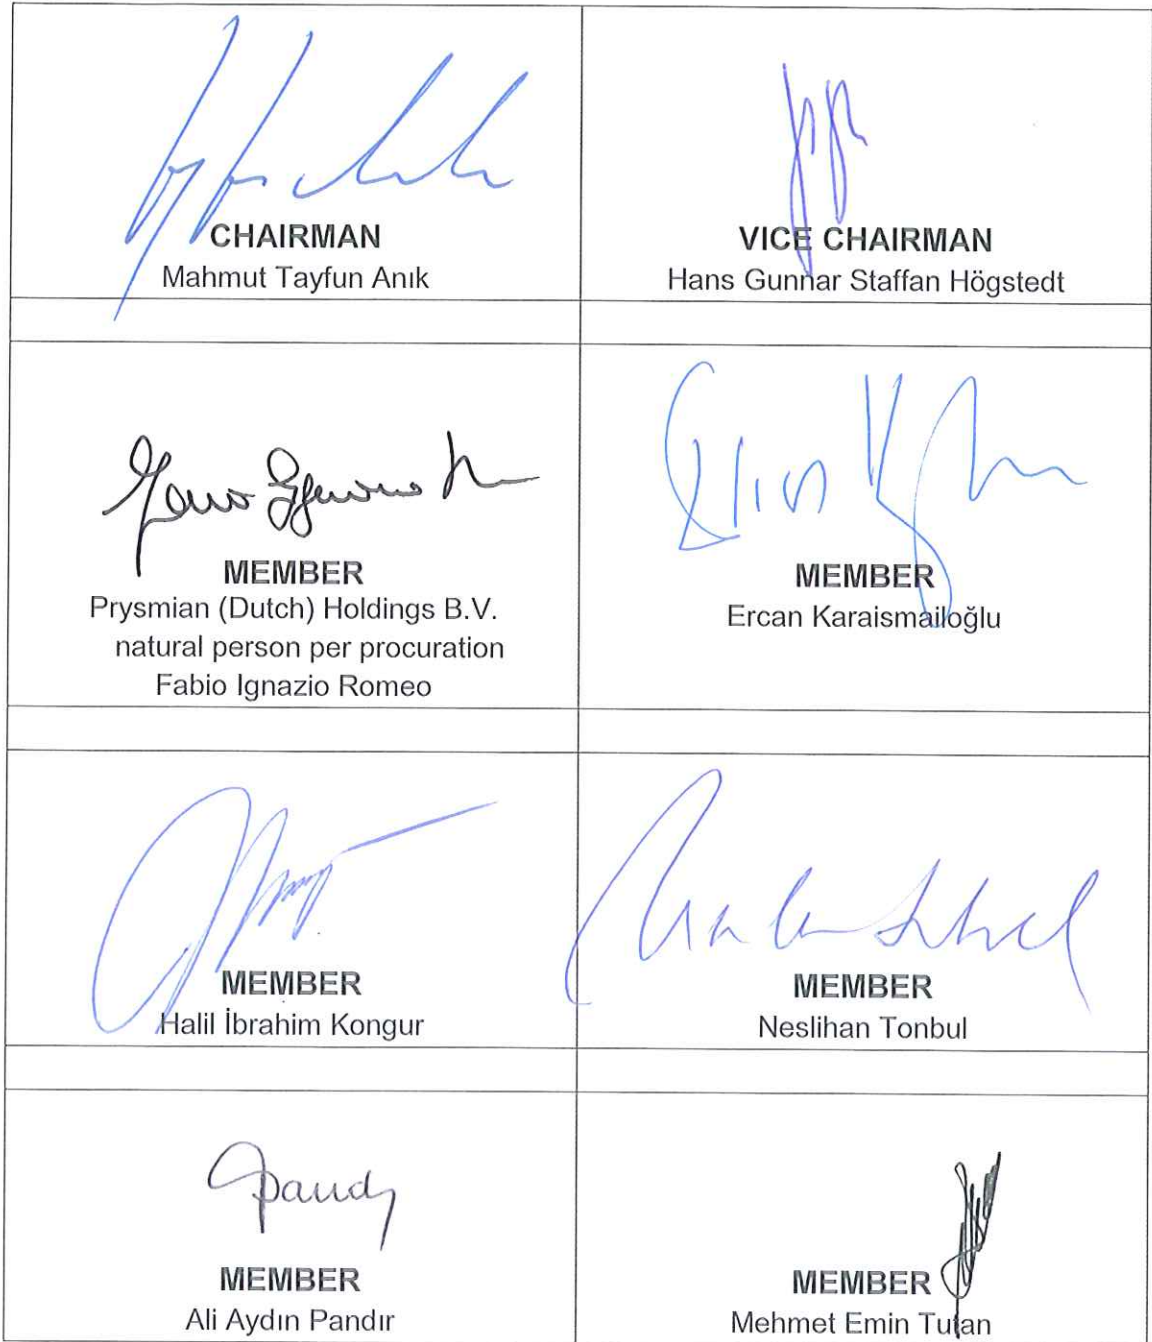 CHAIRMAN
Mahmut Tayfun Anık
VICE CHAIRMAN
Hans Gunnar Staffan Högstedt
MEMBER
Prysmian (Dutch) Holdings B.V.
natural person per procuration
Fabio Ignazio Romeo
MEMBER
Ercan Karaismailoğlu
MEMBER
Halil İbrahim Kongur
MEMBER
Neslihan Tonbul
MEMBER
Ali Aydın Pandır
MEMBER
Mehmet Emin Tutan